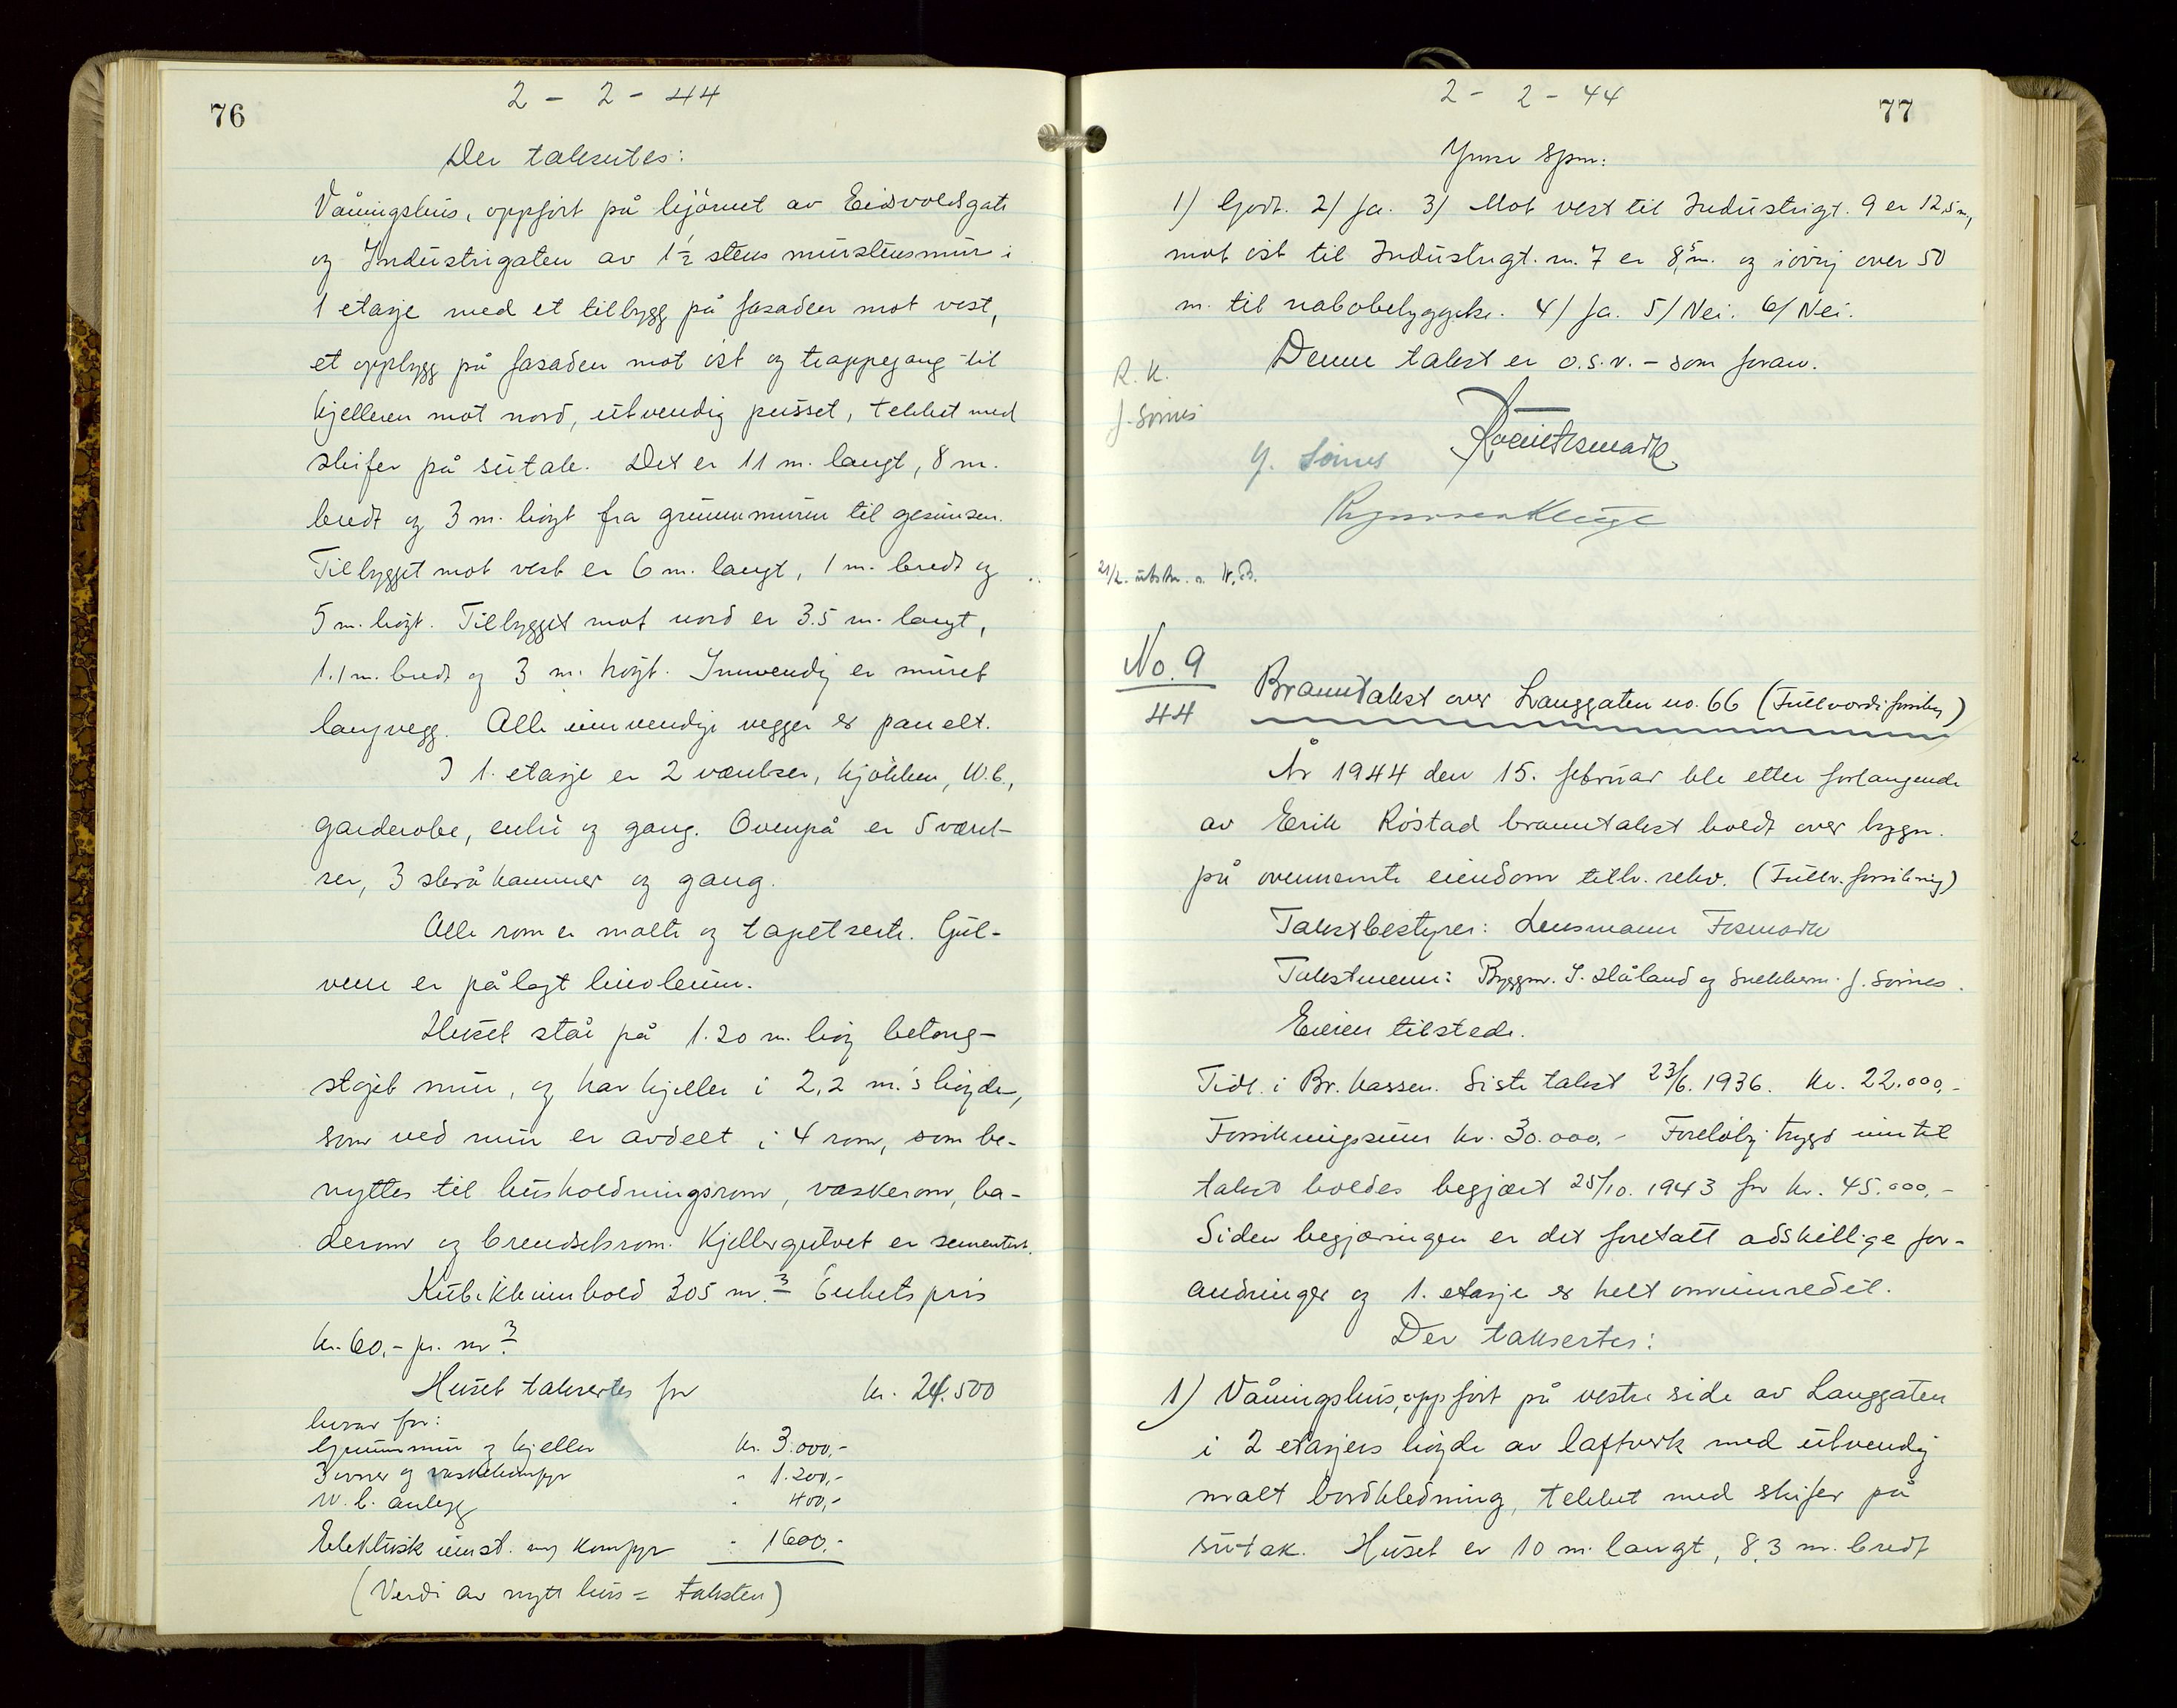 76
2 - 2 - 44
Der takseres:
Våningshus, oppfört på hjörnet av Eidsvoldsgate
og Industrigaten av 1½ stens murstensmur i
1 etasje med et tilbygg på fasaden mot vest,
et oppbygg på fasaden mot öst og trappegang til
kjelleren mot nord, utvendig pusset, tekket med
skifer på sutak. Det er 11 m. langt, 8 m.
bredt og 3 m. högt fra grunnmuren til gesimsen.
Tilbygget mot vest er 6 m. langt, 1 m. bredt og
5 m. högt. Tilbygget mot nord er 3.5 m. langt,
1.1 m. bredt og 3 m. högt. Innvendig er muret
langvegg. Alle innvendige vegger er panelt.
I 1. etasje er 2 værelser, kjökken, W.C.,
garderobe, entre og gang. Ovenpå er 5 værel-
ser, 3 skråkammer og gang.
Alle rom er malte og tapetserte. Gul-
vene er pålagt linoleum.
Huset står på 1.20 m. höy betong-
stöpt mur, og har kjeller i 2,2 m.'s höyde,
som ved mur er avdelt i 4 rom, som be-
nyttes til husholdningsrom, vaskerom, ba-
derom og brendselsrom. Kjellergulvet er sementert.
Kubikkinnhold 305 m.3 Enhetspris
kr. 60,- pr. m3
Huset takseres for kr. 24.500
hvorav for:
Grunnmur og kjeller kr. 3.000,-
3 ovner og vaskekomfyr " 1.200,-
W.C. anlegg " 400,-
Elektrisk inst. og komfyr " 1600,-
(Verdi av nytt hus = taksten)
2 - 2 - 44
77
Ymse spm:
1) Godt. 2) Ja. 3) Mot vest til Industrigt. 9 er 12,5 m.,
mot öst til Industrigt. nr. 7 er 8,5 m. og iövrig over 50
m. til nabobebyggelse. 4) Ja. 5) Nei. 6) Nei.
Denne takst er o.s.v. - som foran.
R. K.
J. Sörnes
J. Sörnes
21/2. utskr. s. N.B.
No. 9
44
Branntakst over Langgaten no. 66 (Fullverdiforsikring)
År 1944 den 15. februar ble etter forlangende
av Erik Röstad branntakst holdt over bygn.
på ovennevnte eiendom tilh. rekv. (Fullv. forsikring)
Takstbestyrer: Lensmann Fosmark
Takstmenn: Byggm. S. Håland og snekkerm. J. Sörnes.
Eieren tilstede.
Tidl. i Br. kassen. Siste takst 23/6. 1936. Kr. 22.000,-
Forsikringssum kr. 30.000,- Foreløbig trygd inntil
takst holdes begjært 25/10. 1943 for kr. 45.000,-
Siden begjæringen er det foretatt adskillige for-
andringer og 1. etasje er helt ominnredet.
Der taksertes:
1) Våningshus, oppfört på vestre side av Langgaten
i 2 etasjers höyde av laftverk med utvendig
malt bordkledning, tekket med skifer på
sutak. Huset er 10 m. langt, 8,3 m. bredt